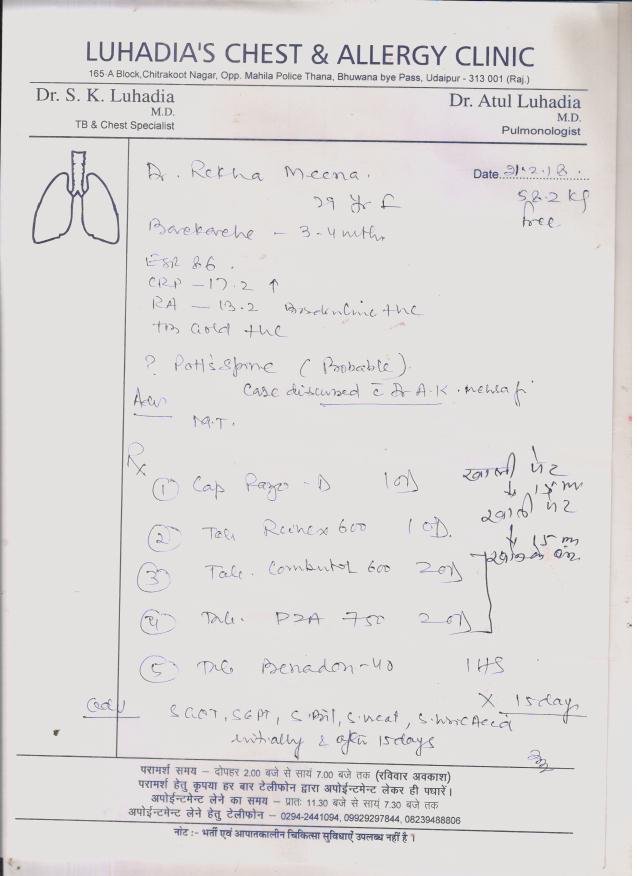 LUHADIA'S CHEST & ALLERGY CLINIC
165-A Block,Chitrakoot Nagar, Opp. Mahila Police Thana, Bhuwana bye Pass, Udaipur - 313 001 (Raj.)
Dr. S. K. Luhadia
M.D.
TB & Chest Specialist
Dr. Atul Luhadia
M.D.
Pulmonologist
Dr. Rekha Meena.
Date 21.2.18.
29 Yr F
58.2 kg
free
Backache - 3-4 mths
ESR 86.
CRP - 17.2 ↑
RA - 13.2 Borderline +ve
TB Gold +ve
? Pott's Spine (Probable).
Case discussed c̄ Dr A.K. Mehta ji
Adv
M.T.
Rx
① Cap Razo-D 1 OD
खाली पेट
↓ 15 m
② Tab R-cinex 600 1 OD.
खाली पेट
↓ 15 m
③ Tab. Combutol 600 2 OD
खाने के बाद
④ Tab. PZA 750 2 OD
⑤ Tab Benadon-40 1 HS
X 15 days
SGOT, SGPT, S.Bil, S.Creat, S.Uric Acid
initially & after 15 days
परामर्श समय – दोपहर 2.00 बजे से सायं 7.00 बजे तक (रविवार अवकाश)
परामर्श हेतु कृपया हर बार टेलीफोन द्वारा अपोईन्टमेन्ट लेकर ही पधारें।
अपोईन्टमेन्ट लेने का समय – प्रातः 11.30 बजे से सायं 7.30 बजे तक
अपोईन्टमेन्ट लेने हेतु टेलीफोन – 0294-2441094, 09929297844, 08239488806
नोट :- भर्ती एवं आपातकालीन चिकित्सा सुविधाऐं उपलब्ध नहीं है।